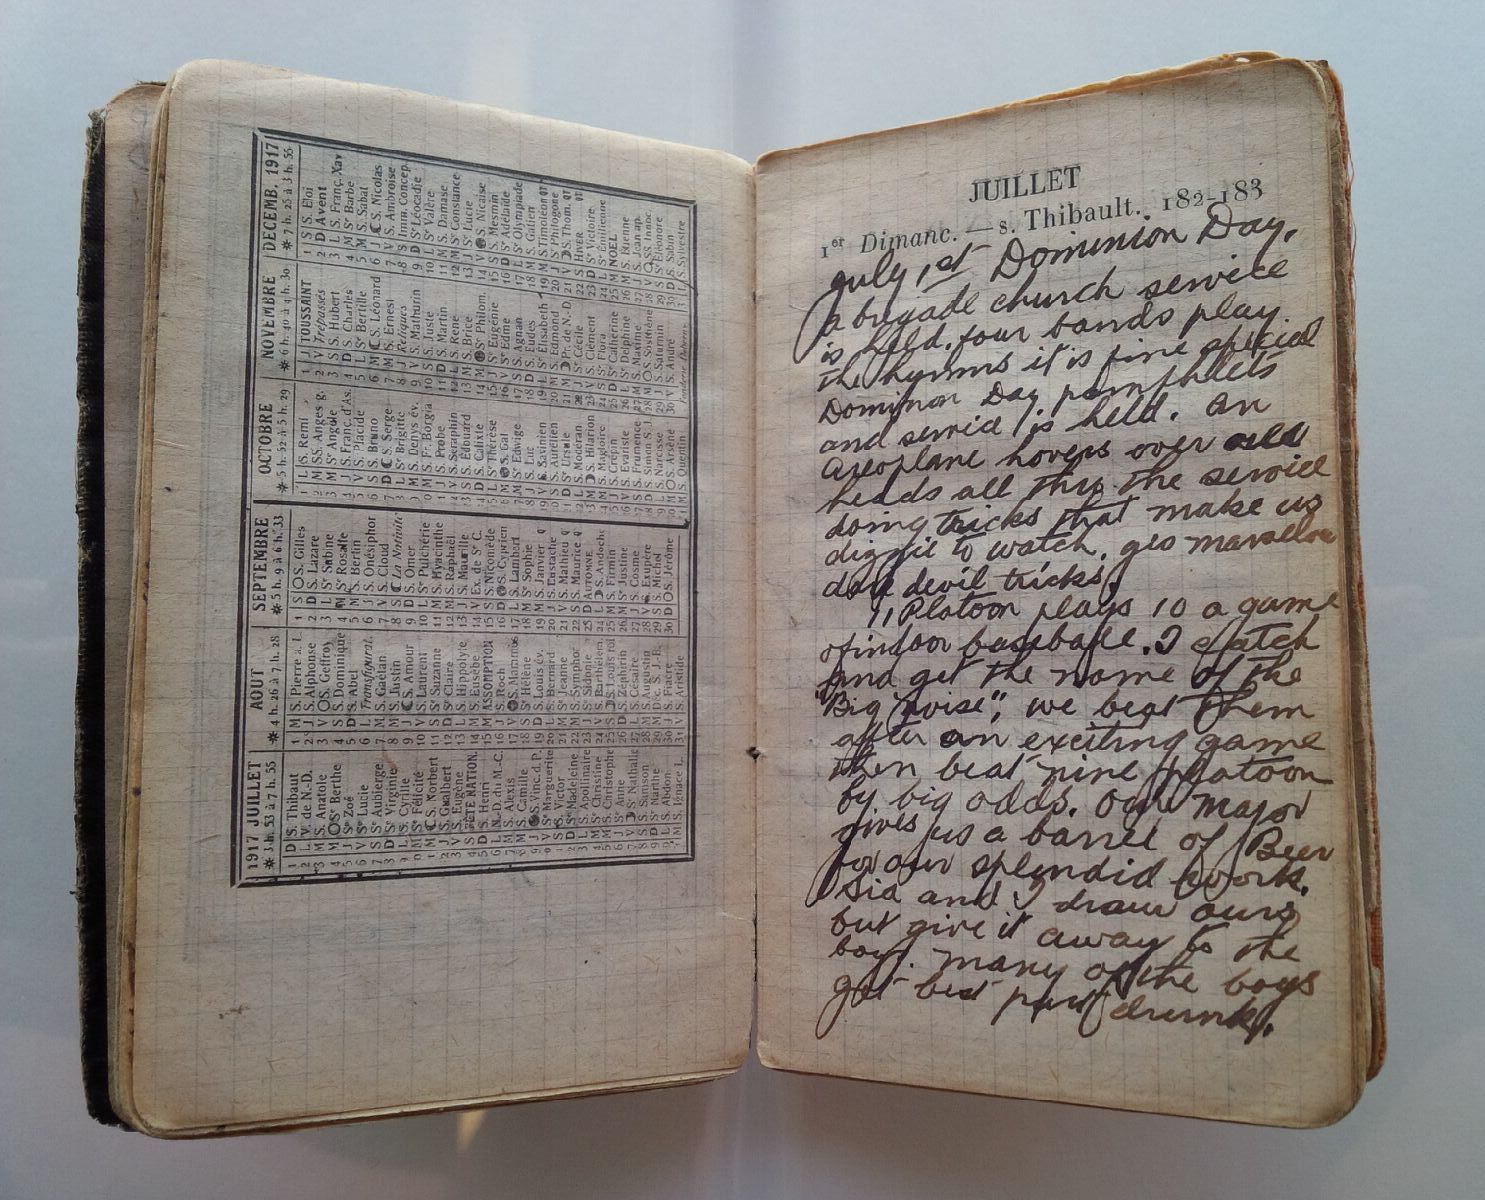 1917 JUILLET
3 h. 53 à 7 h. 55
1 D S. Thibaut
2 L V. de N.-D.
3 M S. Anatole
4 M Se Berthe
5 J Se Zoé
6 V Se Lucie
7 S Se Aubierge.
8 D Se Virginie
9 L S. Cyrille
10 M Se Félicité
11 M S. Norbert
12 J S. Gualbert
13 V S. Eugène
14 S FÊTE NATION.
15 D S. Henri
16 L N.-D. du M.-C.
17 M S. Alexis
18 M S. Camille
19 J S. Vinc. d. P.
20 V Se Marguerite
21 S S. Victor
22 D Se Madeleine
23 L S. Apollinaire
24 M Se Christine
25 M S. Christophe
26 J Se Anne
27 V Se Nathalie
28 S S. Samson
29 D Se Marthe
30 L S. Abdon
31 M S. Ignace L.
AOUT
4 h. 26 à 7 h. 28
1 M S. Pierre a. l.
2 J S. Alphonse
3 V S. Geffroy
4 S S. Dominique
5 D S. Abel
6 L Transfigurat.
7 M S. Gaëtan
8 M S. Justin
9 J S. Amour
10 V S. Laurent
11 S Se Suzanne
12 D Se Claire
13 L S. Hippolyte
14 M S. Eusèbe
15 M ASSOMPTION
16 J S. Roch
17 V S. Mammès
18 S Se Hélène
19 D S. Louis év.
20 L S. Bernard
21 M Se Jeanne
22 M S. Symphor
23 J S. Sidoine
24 V S. Barthélem
25 S S. Louis roi
26 D S. Zéphirin
27 L S. Césaire
28 M S. Augustin
29 M Déc. S. J.-B.
30 J S. Fiacre
31 V S. Aristide
SEPTEMBRE
5 h. 9 à 6 h. 33
1 S S. Gilles
2 D S. Lazare
3 L Se Sabine
4 M Se Rosalie
5 M S. Bertin
6 J S. Onésiphor
7 V S. Cloud
8 S La Nativité
9 D S. Omer
10 L Se Pulchérie
11 M S. Hyacinthe
12 M S. Raphaël
13 J S. Maurille
14 V Ex. de Se C.
15 S S. Nicomède
16 D S. Cyprien
17 L S. Lambert
18 M Se Sophie
19 M S. Janvier
20 J S. Eustache
21 V S. Mathieu
22 S S. Maurice
23 D AUTOMNE
24 L S. Andoche
25 M S. Firmin
26 M Se Justine
27 J S. Cosme
28 V S. Exupère
29 S S. Michel
30 D S. Jérôme
OCTOBRE
5 h. 52 à 5 h. 29
1 L S. Remi
2 M SS. Anges g.
3 M Se Angèle
4 J S. Franç. d'As.
5 V S. Placide
6 S S. Bruno
7 D S. Serge
8 L Se Brigitte
9 M S. Denys év.
10 M S. Fr. Borgia
11 J S. Probe
12 V S. Séraphin
13 S S. Edouard
14 D S. Calixte
15 L Se Thérèse
16 M S. Gal
17 M Se Edwige
18 J S. Luc
19 V S. Savinien
20 S S. Aurélien
21 D Se Ursule
22 L S. Modéran
23 M S. Hilarion
24 M S. Magloire
25 J S. Crépin
26 V S. Evariste
27 S S. Frumence
28 D S. Simon S. J.
29 L S. Narcisse
30 M S. Arsène
31 M S. Quentin
NOVEMBRE
6 h. 40 à 4 h. 30
1 J TOUSSAINT
2 V Trépassés
3 S S. Hubert
4 D S. Charles
5 L Se Bertille
6 M S. Léonard
7 M S. Ernest
8 J Reliques
9 V S. Mathurin
10 S S. Juste
11 D S. Martin
12 L S. René
13 M S. Brice
14 M S. Philom.
15 J Se Eugénie
16 V S. Edme
17 S S. Agnan
18 D S. Eudes
19 L Se Elisabeth
20 M S. Edmond
21 M Pr. de N.-D.
22 J Se Cécile
23 V S. Clément
24 S Se Flora
25 D Se Catherine
26 L Se Delphine
27 M S. Maxime
28 M S. Sosthène
29 J S. Saturnin
30 V S. André
DECEMB. 1917
7 h. 25 à 3 h. 55
1 S S. Eloi
2 D Avent
3 L S. Franç. Xav
4 M Se Barbe
5 M S. Sabat
6 J S. Nicolas
7 V S. Ambroise
8 S Imm. Concep.
9 D Se Léocadie
10 L Se Valère
11 M S. Damase
12 M Se Constance
13 J Se Lucie
14 V S. Nicaise
15 S S. Mesmin
16 D Se Adélaïde
17 L Se Olympiade
18 M S. Gatien
19 M S. Timoléon QT
20 J S. Philogone
21 V S. Thom. QT
22 S HIVER QT
23 D Se Victoire
24 L Se Emilienne
25 M NOEL
26 M S. Etienne
27 J S. Jean ap.
28 V SS. Innoc.
29 S Se Eléonore
30 D S. Sabin
31 L S. Sylvestre
JUILLET
1er Dimanc. — s. Thibault. 182-183
July 1st Dominion Day.
a brigade church service
is held. four bands play
the hymns it is fine special
Dominon Day pamphlets
and servic is held. an
areoplane hovers over
heads all thru the service
doing tricks that make us
to watch. marvellous
devil tricks.
11 Platoon plays 10 a game
of indoor baseball. I catch
and get the name of the
"Big noise", we beat them
after an exciting game
then beat nine platoon
by big odds. Our major
gives us a barrel of Beer
for our splendid work.
Sid and I draw ours
but give it away to the
boys. many of the boys
get best part drunk.